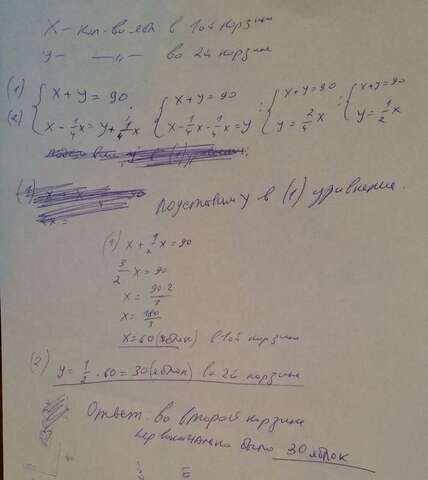 X - кол-во ябл в 1ой корзине
y - —„— во 2й корзине
(1) { x + y = 90 ; { x + y = 90 ; { x + y = 90 ; { x + y = 90
(2) { x - 1/4 x = y + 1/4 x { x - 1/4 x - 1/4 x = y { y = 2/4 x { y = 1/2 x
Подставим y в (1) уравнение.
(1) x + 1/2 x = 90
3/2 x = 90
x = 90·2/3
x = 180/3
x = 60 (яблок) в 1ой корзине
(2) y = 1/2 · 60 = 30 (яблок) во 2й корзине
Ответ: во второй корзине
первоначально было 30 яблок